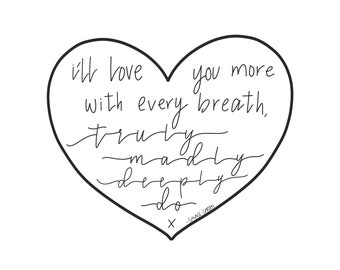 i'll love you more
with every breath,
truly
madly
deeply
do
x